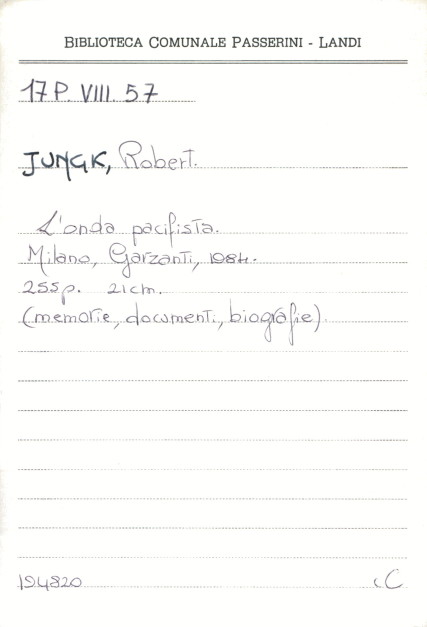 BIBLIOTECA COMUNALE PASSERINI - LANDI
17 P. VIII. 57
JUNGK, Robert.
L'onda pacifista.
Milano, Garzanti, 1984.
255p. 21cm.
(memorie, documenti, biografie).
194820